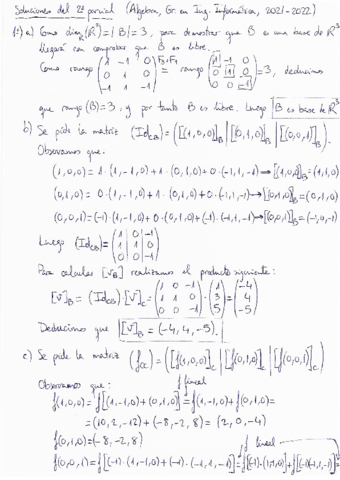 Soluciones del 2º parcial (Álgebra, Gr. en Ing. Informática, 2021-2022)
1º) a) Como dim_R(R³) = |B| = 3, para demostrar que B es una base de R³
llegará con comprobar que B es libre.
Como rango (1 -1 0 / 0 1 0 / -1 1 -1) F3+F1 = rango (1 -1 0 / 0 1 0 / 0 0 -1) = 3, deducimos
que rango (B) = 3, y por tanto B es libre. Luego B es base de R³
b) Se pide la matriz (Id_CB) = ([(1,0,0)]_B | [(0,1,0)]_B | [(0,0,1)]_B).
Observamos que:
(1,0,0) = 1·(1,-1,0) + 1·(0,1,0) + 0·(-1,1,-1) → [(1,0,0)]_B = (1,1,0)
(0,1,0) = 0·(1,-1,0) + 1·(0,1,0) + 0·(-1,1,-1) → [(0,1,0)]_B = (0,1,0)
(0,0,1) = (-1)·(1,-1,0) + 0·(0,1,0) + (-1)·(-1,1,-1) → [(0,0,1)]_B = (-1,0,-1)
Luego (Id_CB) = (1 0 -1 / 1 1 0 / 0 0 -1)
Para calcular [v]_B realizamos el producto siguiente:
[v]_B = (Id_CB) [v]_C = (1 0 -1 / 1 1 0 / 0 0 -1) · (1 / 3 / 5) = (-4 / 4 / -5)
Deducimos que [v]_B = (-4, 4, -5).
c) Se pide la matriz (f_CC) = ([f(1,0,0)]_C | [f(0,1,0)]_C | [f(0,0,1)]_C)
Observamos que: f lineal
f(1,0,0) = f[(1,-1,0) + (0,1,0)] = f(1,-1,0) + f(0,1,0) =
= (10, 2, -12) + (-8, -2, 8) = (2, 0, -4)
f(0,1,0) = (-8, -2, 8)
f lineal
f(0,0,1) = f[(-1)·(1,-1,0) + (-1)·(-1,1,-1)] = f[(-1)·(1,-1,0)] + f[(-1)(-1,1,-1)] =